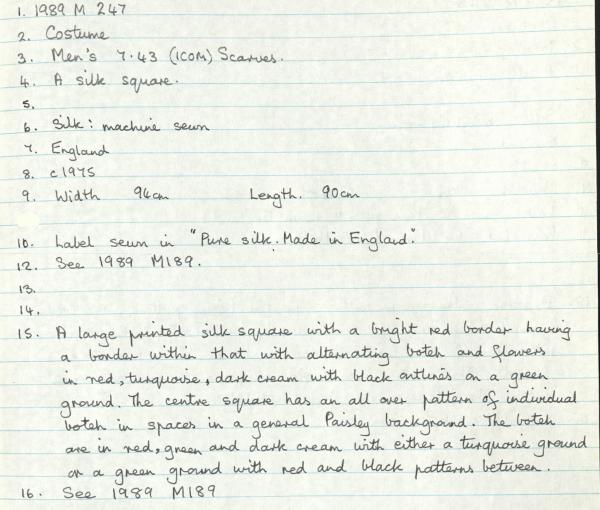 1. 1989 M 247
2. Costume
3. Men's 7.43 (ICOM) Scarves.
4. A silk square.
5.
6. Silk: machine sewn
7. England
8. c1975
9. Width 94cm Length. 90cm
10. Label sewn in "Pure silk. Made in England."
12. See 1989 M189.
13.
14.
15. A large printed silk square with a bright red border having
a border within that with alternating boteh and flowers
in red, turquoise, dark cream with black outlines on a green
ground. The centre square has an all over pattern of individual
boteh in spaces in a general Paisley background. The boteh
are in red, green and dark cream with either a turquoise ground
or a green ground with red and black patterns between.
16. See 1989 M189